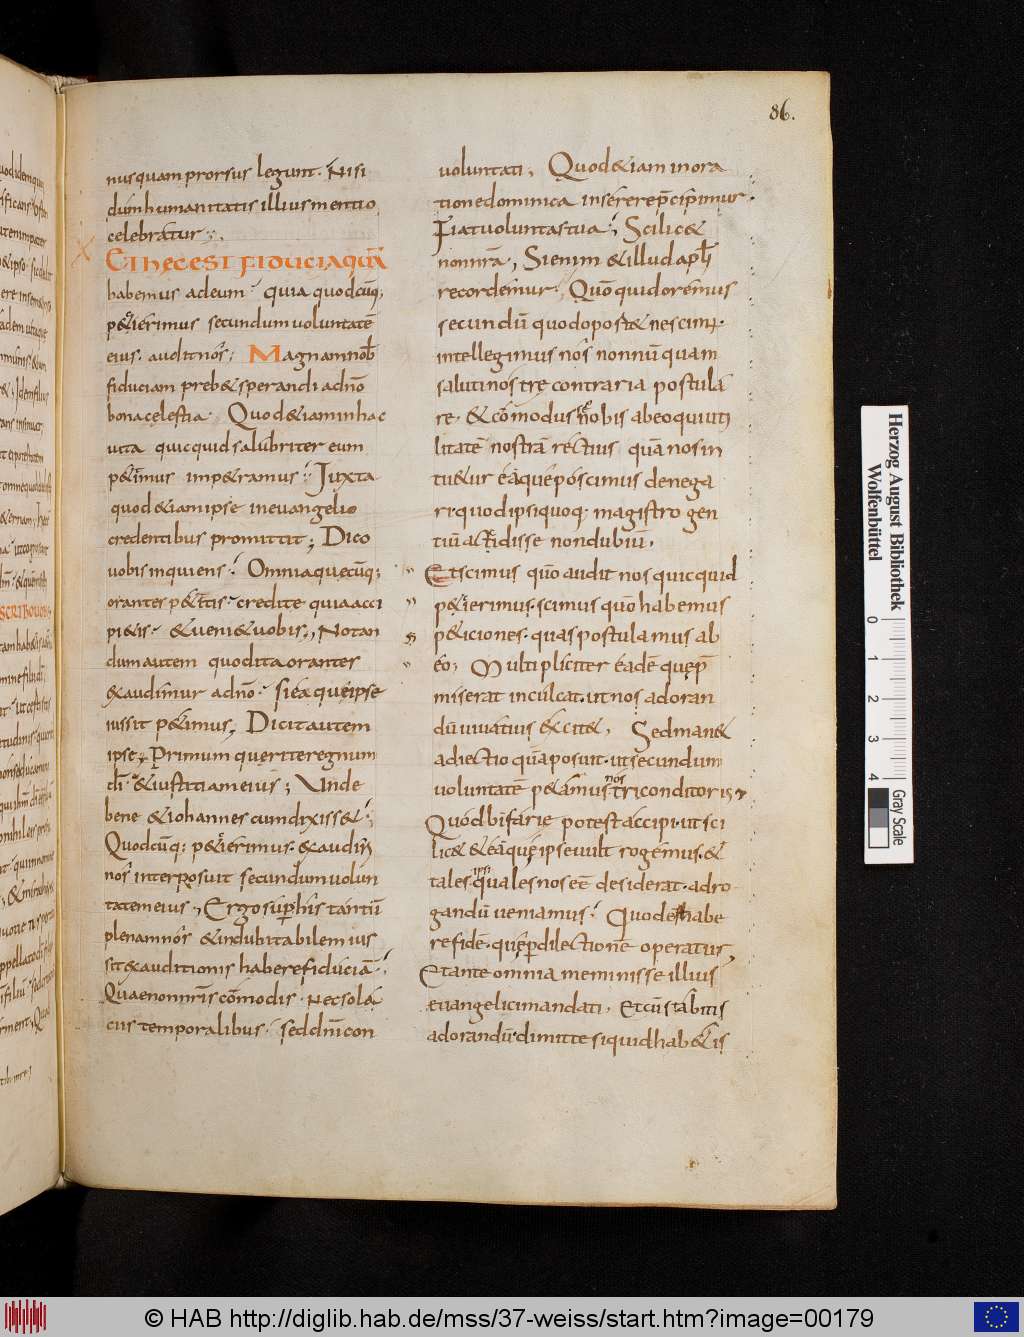 86.
nusquam prorsus legunt. Nisi
dum humanitatis illius mentio
celebratur;
ET hęc EST FIDUCIA quā
habemus ad eum quia quodcūq;
p&ierimus secundum voluntatē
eius. audit nos; Magnam nob̄
fiduciam preb& sperandi a dn̄o
bona cęlestia. Quod &iam in hac
vita quicquid salubriter eum
p&imus imp&ramus; Juxta
quod &iam ipse in euangelio
credentibus promittit; Dico
uobis inquiens; Omnia quecūq;
orantes p&itis credite quia acci
pi&is. & ueni& uobis; Notan
dum autem quod ita orantes
exaudimur a dn̄o. si ea que ipse
iussit p&imus; Dicit autem
ipse; Primum querite regnum
dī & iustitiam eius; Unde
bene & iohannes cum dixiss&;
Quodcūq; p&ierimus. exaudi&
nos interposuit secundum volun
tatem eius; Ergo super his tantū
plenam nos & indubitabilem ius
sit exauditionis habere fiduciā.
Quae non nr̄is cōmodis. Nec sola
cus temporalibus. sed dn̄i con
uoluntati; Quod &iam in ora
tione dominica inserere p̄cipimur.
Fiat uoluntas tua; Scilic&
non nr̄a; Si enim & illud apl̄i
recordemur. Quō quid oremus
secundū quod oport& nescim;
intellegimus nos non nū quam
saluti nostrę contraria postula
re. & commodius nobis ab eo qui uti
litatē nostrā rectius quā nos in
tu&ur ea que poscimus denega
ri quod ipsi quoq; magistro gen
tiū accidisse non dubiū.
Et scimus quō audit nos quicquid
p&ierimus. scimus quō habemus
p&iciones. quas postulamus ab
eo; Multipliciter eadē quę p̄
miserat inculcat. ut nos ad oran
dū uiuatius excit&. Sed man&
adiectio quā posuit. ut secundum
voluntatē p&amus nostri conditoris;
Quod bifarie potest accipi. ut sci
lic& & ea quę ipse uult rogemus. &
tales quales nos ēē desiderat. ad ro
gandū ueniamus; Quod ē habe
re fidē. quę p̄ dilectionē operatur.
Et ante omnia meminisse illius
euangelici mandati. Et cū stabitis
ad orandū dimittite si quid hab&is
Herzog August Bibliothek
Wolfenbüttel
0 1 2 3 4
Gray Scale
© HAB http://diglib.hab.de/mss/37-weiss/start.htm?image=00179